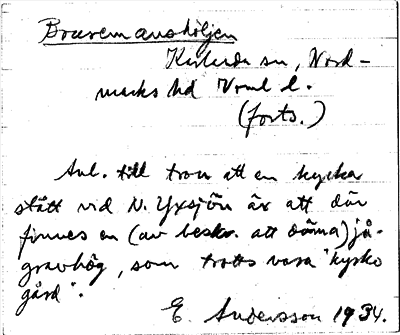 Bravemanshöljen
Karlanda sn, Nord-
marks hd Vrml l.
(forts.)
Anl. till tron att en kyrka
stått vid N. Yxsjön är att där
finnes en (av beskr. att döma) jä-
gravhög, som trotts vara "kyrko
gård".
E. Andersson 1934.